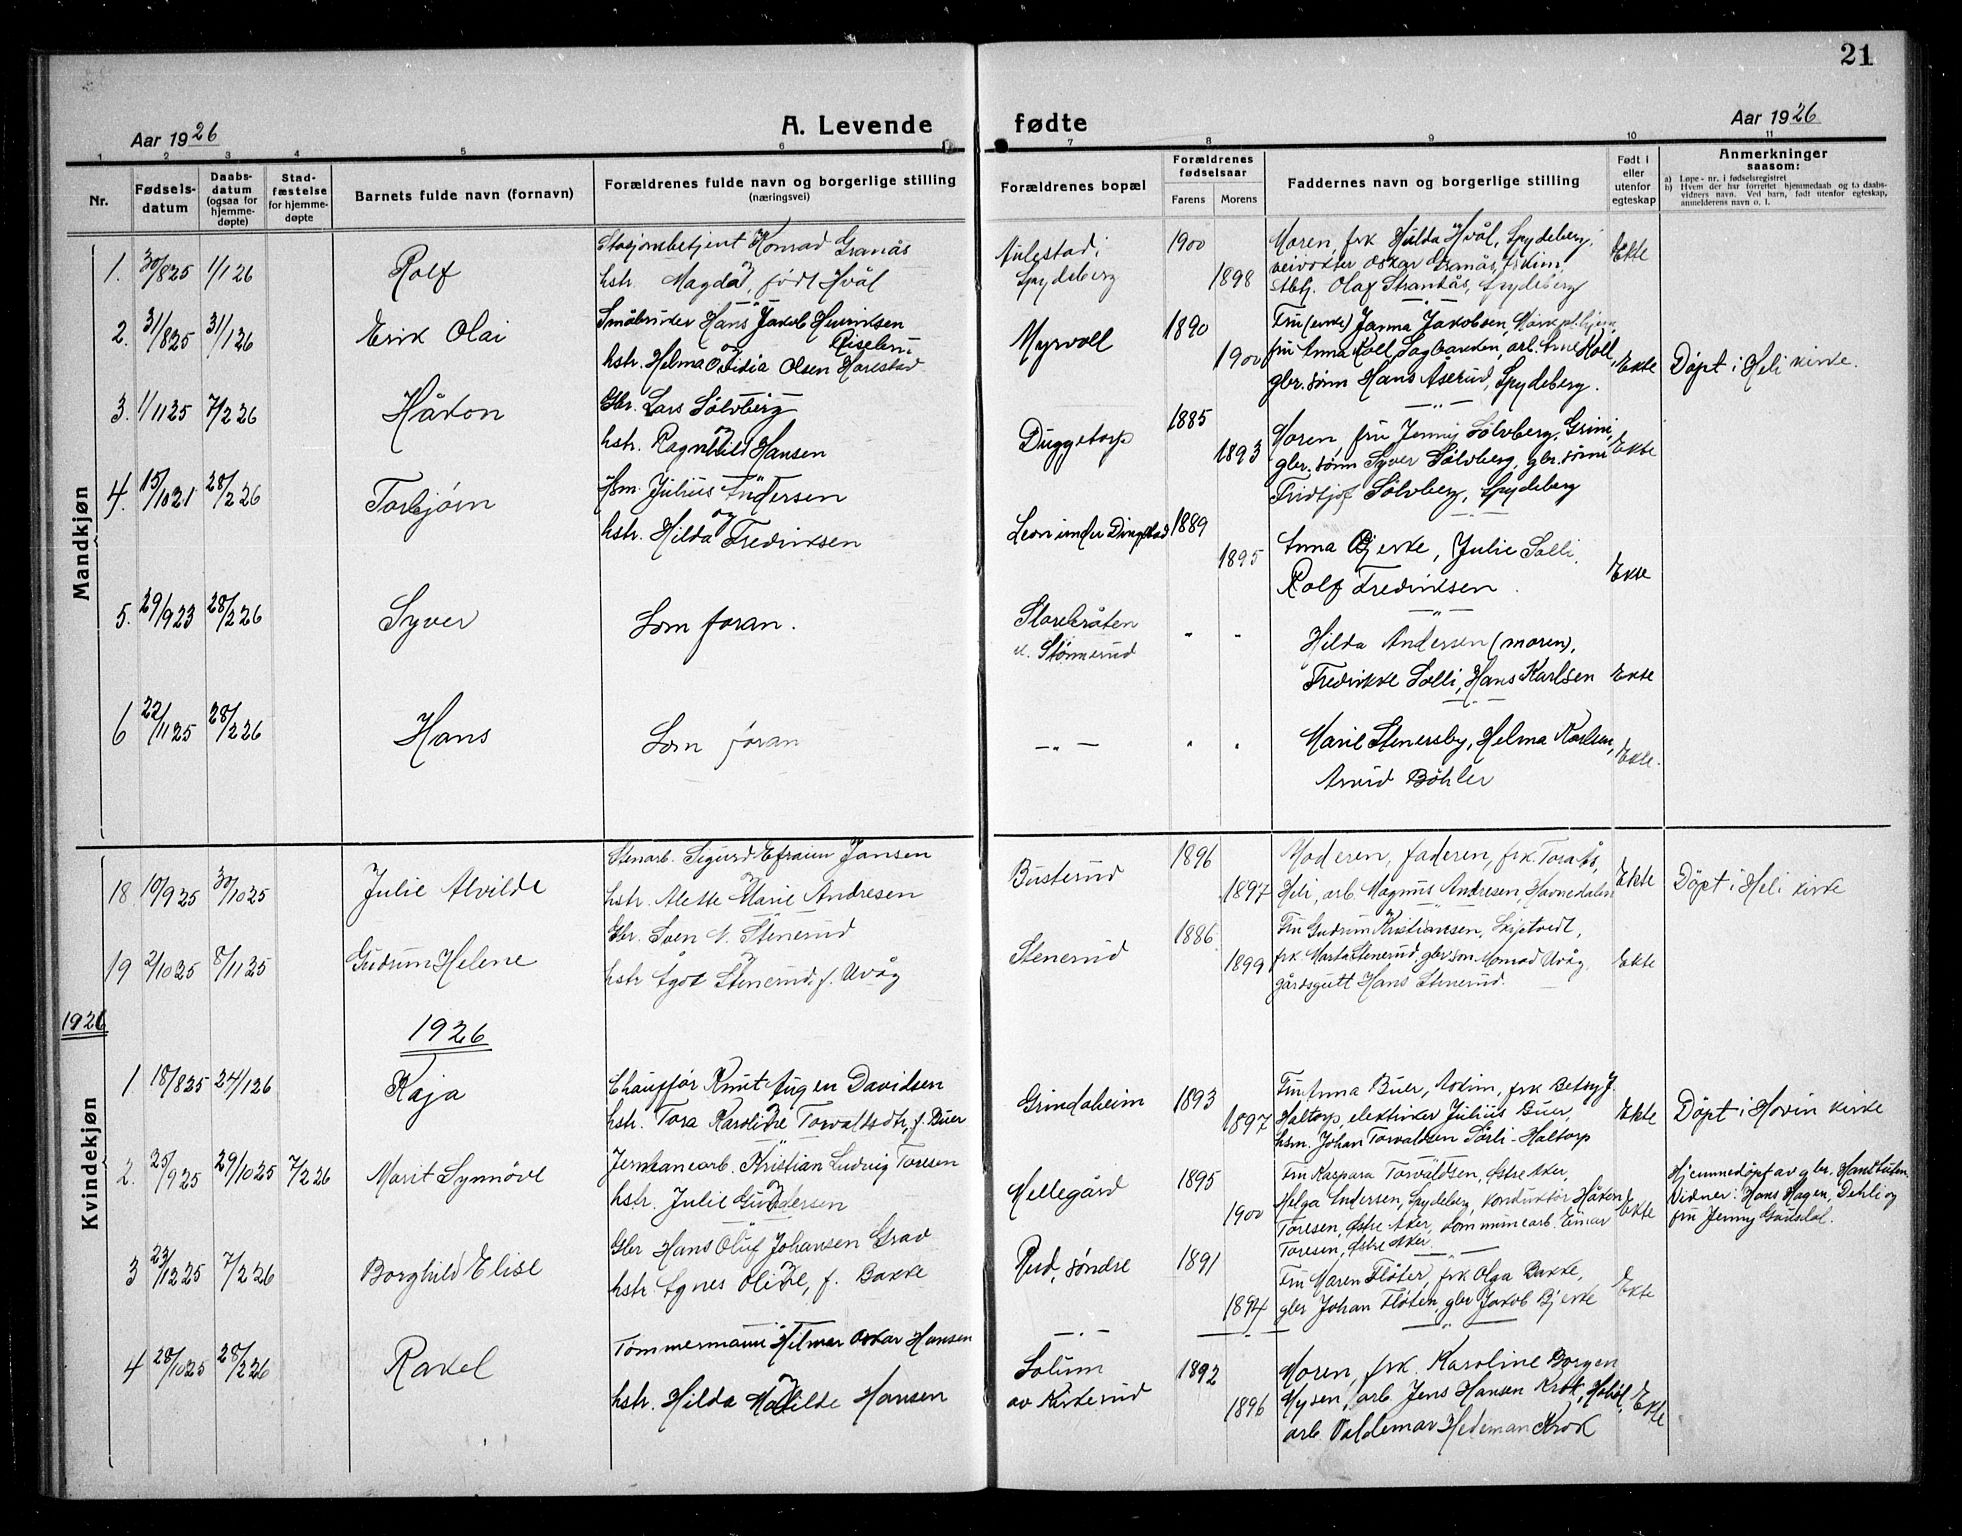 21
Aar 1926
A. Levende fødte
Aar 1926
1 2 3 4 5 6 7 8 9 10 11
Nr.
Fødsels-
datum
Daabs-
datum
(ogsaa for
hjemme-
døpte)
Stad-
fæstelse
for hjemme-
døpte
Barnets fulde navn (fornavn)
Forældrenes fulde navn og borgerlige stilling
(næringsvei)
Forældrenes bopæl
Forældrenes
fødselsaar
Farens Morens
Faddernes navn og borgerlige stilling
Født i
eller
utenfor
egteskap
Anmerkninger
saasom:
a) Løpe-nr. i fødselsregistret
b) Hvem der har forrettet hjemmedaab og to daabs-
vidners navn. Ved barn, født utenfor egteskap,
anmelderens navn o. l.
Mandkjøn
1. 30/8 25 1/1 26 Rolf
Stasjonsbetjent Konrad Granås
og
hstr. Magda, født Hvål
Aulestad i
Spydeberg
1900
1898
Moren, frk Hilda Hvål, Spydeberg,
veivokter Oskar Granås, Askim
stbtj. Olaf Strandås, Spydeberg
Ekte
2. 31/8 25 31/1 26 Erik Olai
Småbruker Hans Jakob Henriksen
og
hstr. Helma Olsen Harestad
Myrvoll
1890
1900
Fru (enke) Janna Jakobsen,
fru Anna Koll Sagbakken, arb. Arne Koll,
gbr. sønn Hans Åserud, Spydeberg.
Ekte
Döpt i Heli kirke.
3. 1/11 25 7/2 26 Håkon
Gbr. Lars Sølvberg
og
hstr. Ragnhild Hansen
Duggetorp
1885
1893
Moren, fru Jenny Sølvberg, Grini,
gbr. sønn Syver Sølvberg, gbr. sønn
Fridtjof Sølvberg, Spydeberg
Ekte
4. 15/10 21 28/2 26 Torbjørn
Hsm. Julius Andersen
og
hstr. Hilda Fredriksen
Leon under Dingstad
1889
1895
Anna Bjerke, Julie Solli,
Rolf Fredriksen.
Ekte
5. 29/9 23 28/2 26 Syver
Som foran.
Storebråten
u. Stønnerud
" "
Hilda Andersen (moren),
Fredrikke Solli, Hans Karlsen
Ekte
6 22/11 25 28/2 26 Hans
Som foran
— " —
" "
Marie Stenersby, Helma Karlsen,
Arvid Böhler
Ekte.
Kvindekjøn
18. 10/9 25 30/10 25 Julie Alvilde
Stenarb. Sigurd Efraim Jansen
og
hstr. Alette Marie Andresen
Busterud
1896
1897
Moderen, faderen, frk. Tora Ås,
Heli, arb. Magnus Andresen, Havnedalen
Ekte
Döpt i Heli kirke
19 2/10 25 8/11 25 Gudrun Helene
Gbr. Sven N. Stenerud
og
hstr Ågot Stenerud f. Uvåg
Stenerud
1886
1899
Fru Gudrun Kristiansen, Skiptvedt,
frk Marta Stenerud, gbr søn Monrad Uvåg
gårdsgutt Hans Stenerud.
Ekte
1926
1926
1 18/8 25 24/1 26 Kaja
Chauffør Knut Augen Davidsen
og
hstr. Tora Karoline Torvaldsdtr, f. Buer
Grindaheim
1893
1897
Fru Anna Buer, Askim, frk Betsy J.
Haltorp, elektriker Julius Buer,
hsm. Johan Torvaldsen Sørli - Haltorp
Ekte
Döpt i Hovin kirke
2. 25/9 25 29/10 25 7/2 26 Marit Synnöve
Jernbanearb. Kristian Ludvig Toresen
og
hstr. Julie Gundersen
Hellegård
1895
1900
Fru Kaspara Torvaldsen, Østre Aker,
Helga Andersen, Spydeberg, konduktør Håkon
Toresen, Østre Aker, kommunearb. Einar
Toresen, Østre Aker
Ekte
Hjemmedøpt av gbr. Hans
Vidner: Hans Hagen, Dehli og
fru Jenny Gausdal.
3 23/12 25 7/2 26 Borghild Elise
Gbr Hans Oluf Johansen Grav
og
hstr Agnes Oline, f. Bakke
Rud, søndre
1891
1894
Fru Maren Fløter, frk Olga Bakke,
gbr Johan Fløten, gbr Jakob Bjerke
Ekte
4 28/10 25 28/2 26 Rakel
Tømmermann Hilmar Oskar Hansen
og
hstr. Hilda Matilde Hansen
Solum
av Kirkerud
1892
1896
Moren, frk. Karoline Borgen
Mysen, arb Jens Hansen Krok, Hobøl,
arb. Valdemar Hedeman Krok
Ekte